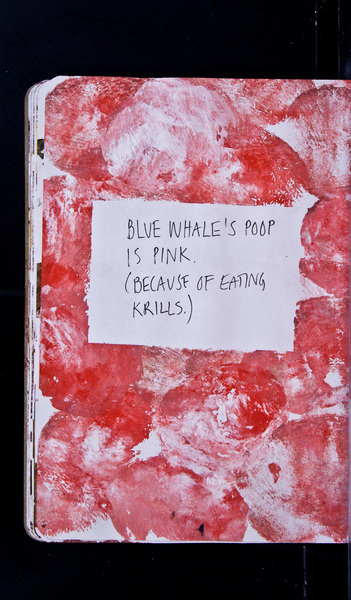 BLUE WHALE'S POOP
IS PINK.
(BECAUSE OF EATING
KRILLS.)